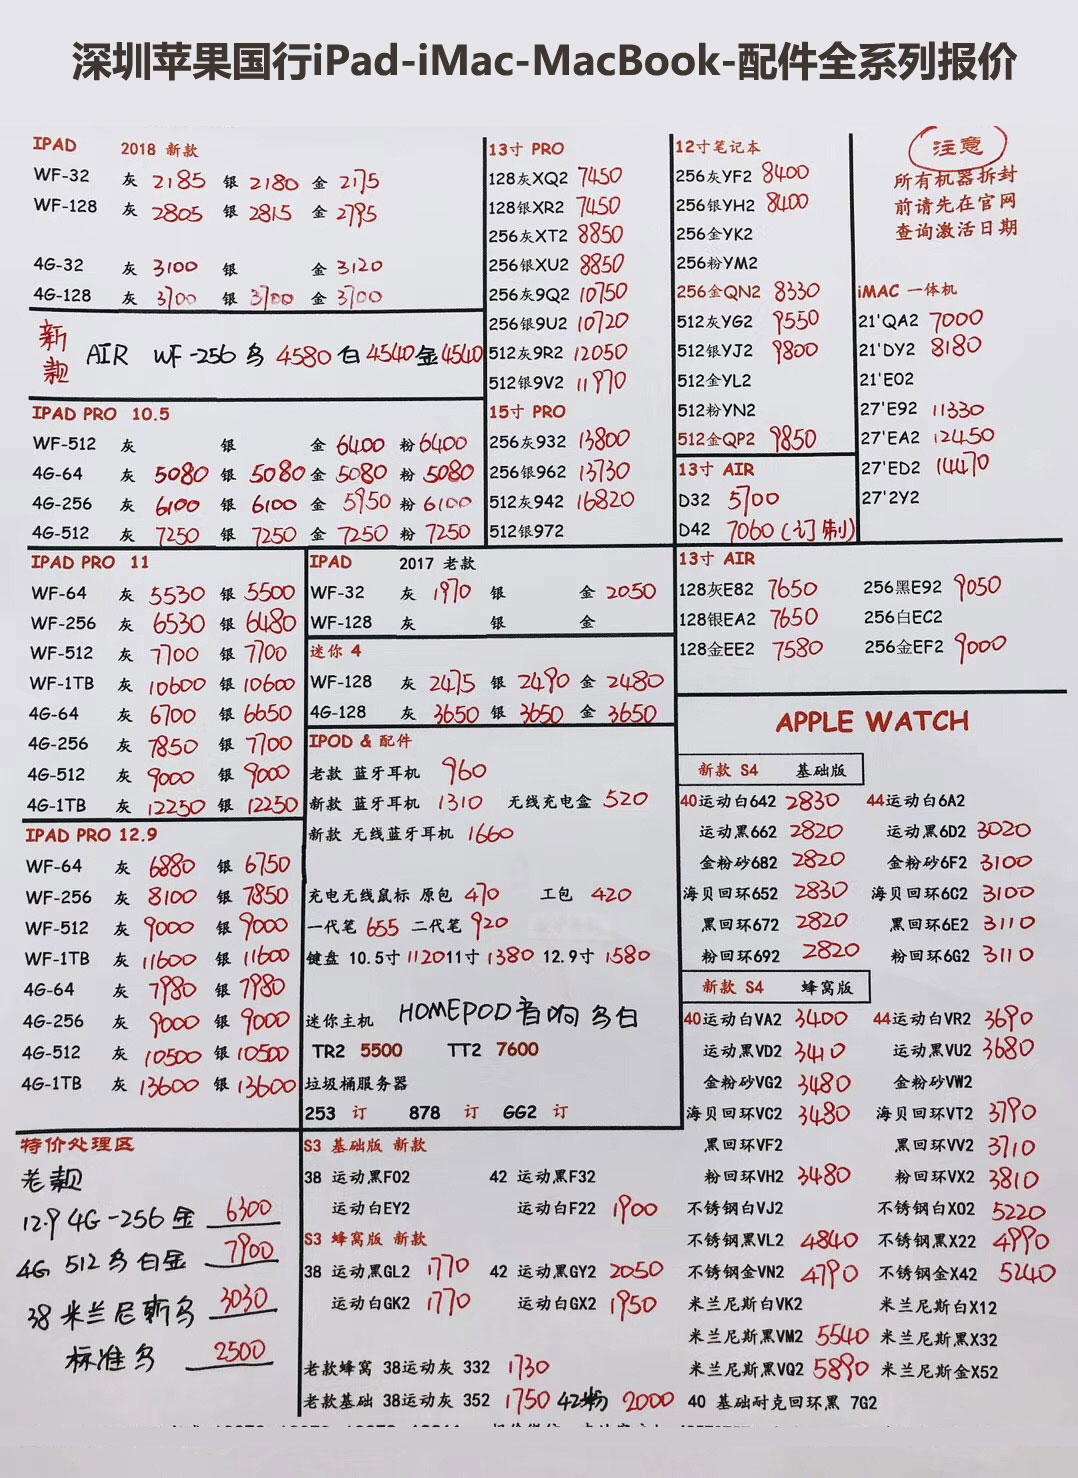 深圳苹果国行iPad-iMac-MacBook-配件全系列报价
IPAD 2018 新款
WF-32 灰 2185 银 2180 金 2175
WF-128 灰 2805 银 2815 金 2795
4G-32 灰 3100 银 金 3120
4G-128 灰 3700 银 3700 金 3700
新款 AIR WF-256 白 4540 金 4540
IPAD PRO 10.5
WF-512 灰 银 金 6400 粉 6400
4G-64 灰 5080 银 5080 金 5080 粉 5080
4G-256 灰 6100 银 6100 金 5950 粉 6100
4G-512 灰 7250 银 7250 金 7250 粉 7250
13寸 PRO
128灰XQ2 7450
128银XR2 7450
256灰XT2 8850
256银XU2 8850
256灰9Q2 10750
256银9U2 10720
512灰9R2 12050
512银9V2 11970
15寸 PRO
256灰932 13800
256银962 13730
512灰942 16820
512银972
12寸笔记本
256灰YF2 8400
256银YH2 8400
256金YK2
256粉YM2
256金QN2 8330
512灰YG2 9550
512银YJ2 9800
512金YL2
512粉YN2
512金QP2 9850
13寸 AIR
D32 5700
D42 7060(订制)
注意
所有机器拆封
前请先在官网
查询激活日期
iMAC 一体机
21'QA2 7000
21'DY2 8180
21'E02
27'E92 11330
27'EA2 12450
27'ED2 14470
27'2Y2
IPAD PRO 11
WF-64 灰 5530 银 5500
WF-256 灰 6530 银 6480
WF-512 灰 7700 银 7700
WF-1TB 灰 10600 银 10600
4G-64 灰 6700 银 6650
4G-256 灰 7850 银 7700
4G-512 灰 9000 银 9000
4G-1TB 灰 12250 银 12250
IPAD PRO 12.9
WF-64 灰 6880 银 6750
WF-256 灰 8100 银 7850
WF-512 灰 9000 银 9000
WF-1TB 灰 11600 银 11600
4G-64 灰 7980 银 7980
4G-256 灰 9000 银 9000
4G-512 灰 10500 银 10500
4G-1TB 灰 13600 银 13600
IPAD 2017 老款
WF-32 灰 1970 银 金 2050
WF-128 灰 银 金
迷你 4
WF-128 灰 2475 银 2490 金 2480
4G-128 灰 3650 银 3650 金 3650
IPOD & 配件
老款 蓝牙耳机 960
新款 蓝牙耳机 1310 无线充电盒 520
新款 无线蓝牙耳机 1660
充电无线鼠标 原包 470 工包 420
一代笔 655 二代笔 920
键盘 10.5寸 1120 11寸 1380 12.9寸 1580
迷你主机 HOMEPOD音响 白
TR2 5500 TT2 7600
垃圾桶服务器
253 订 878 订 GG2 订
13寸 AIR
128灰E82 7650 256黑E92 9050
128银EA2 7650 256白EC2
128金EE2 7580 256金EF2 9000
APPLE WATCH
新款 S4 基础版
40运动白642 2830 44运动白6A2
运动黑662 2820 运动黑6D2 3020
金粉砂682 2820 金粉砂6F2 3100
海贝回环652 2830 海贝回环6G2 3100
黑回环672 2820 黑回环6E2 3110
粉回环692 2820 粉回环6G2 3110
新款 S4 蜂窝版
40运动白VA2 3400 44运动白VR2 3690
运动黑VD2 3410 运动黑VU2 3680
金粉砂VG2 3480 金粉砂VW2
海贝回环VC2 3480 海贝回环VT2 3790
黑回环VF2 黑回环VV2 3710
粉回环VH2 3480 粉回环VX2 3810
不锈钢白VJ2 不锈钢白X02 5220
不锈钢黑VL2 4840 不锈钢黑X22 4990
不锈钢金VN2 4790 不锈钢金X42 5240
米兰尼斯白VK2 米兰尼斯白X12
米兰尼斯黑VM2 5540 米兰尼斯黑X32
米兰尼斯黑VQ2 5890 米兰尼斯金X52
40 基础耐克回环黑 7G2
特价处理区
老款
12.9 4G-256 金 6300
4G 512 白金 7900
38 米兰尼斯 3030
标准 2500
S3 基础版 新款
38 运动黑F02 42 运动黑F32
运动白EY2 运动白F22 1900
S3 蜂窝版 新款
38 运动黑GL2 1770 42 运动黑GY2 2050
运动白GK2 1770 运动白GX2 1950
老款蜂窝 38运动灰 332 1730
老款基础 38运动灰 352 1750 42粉 2000